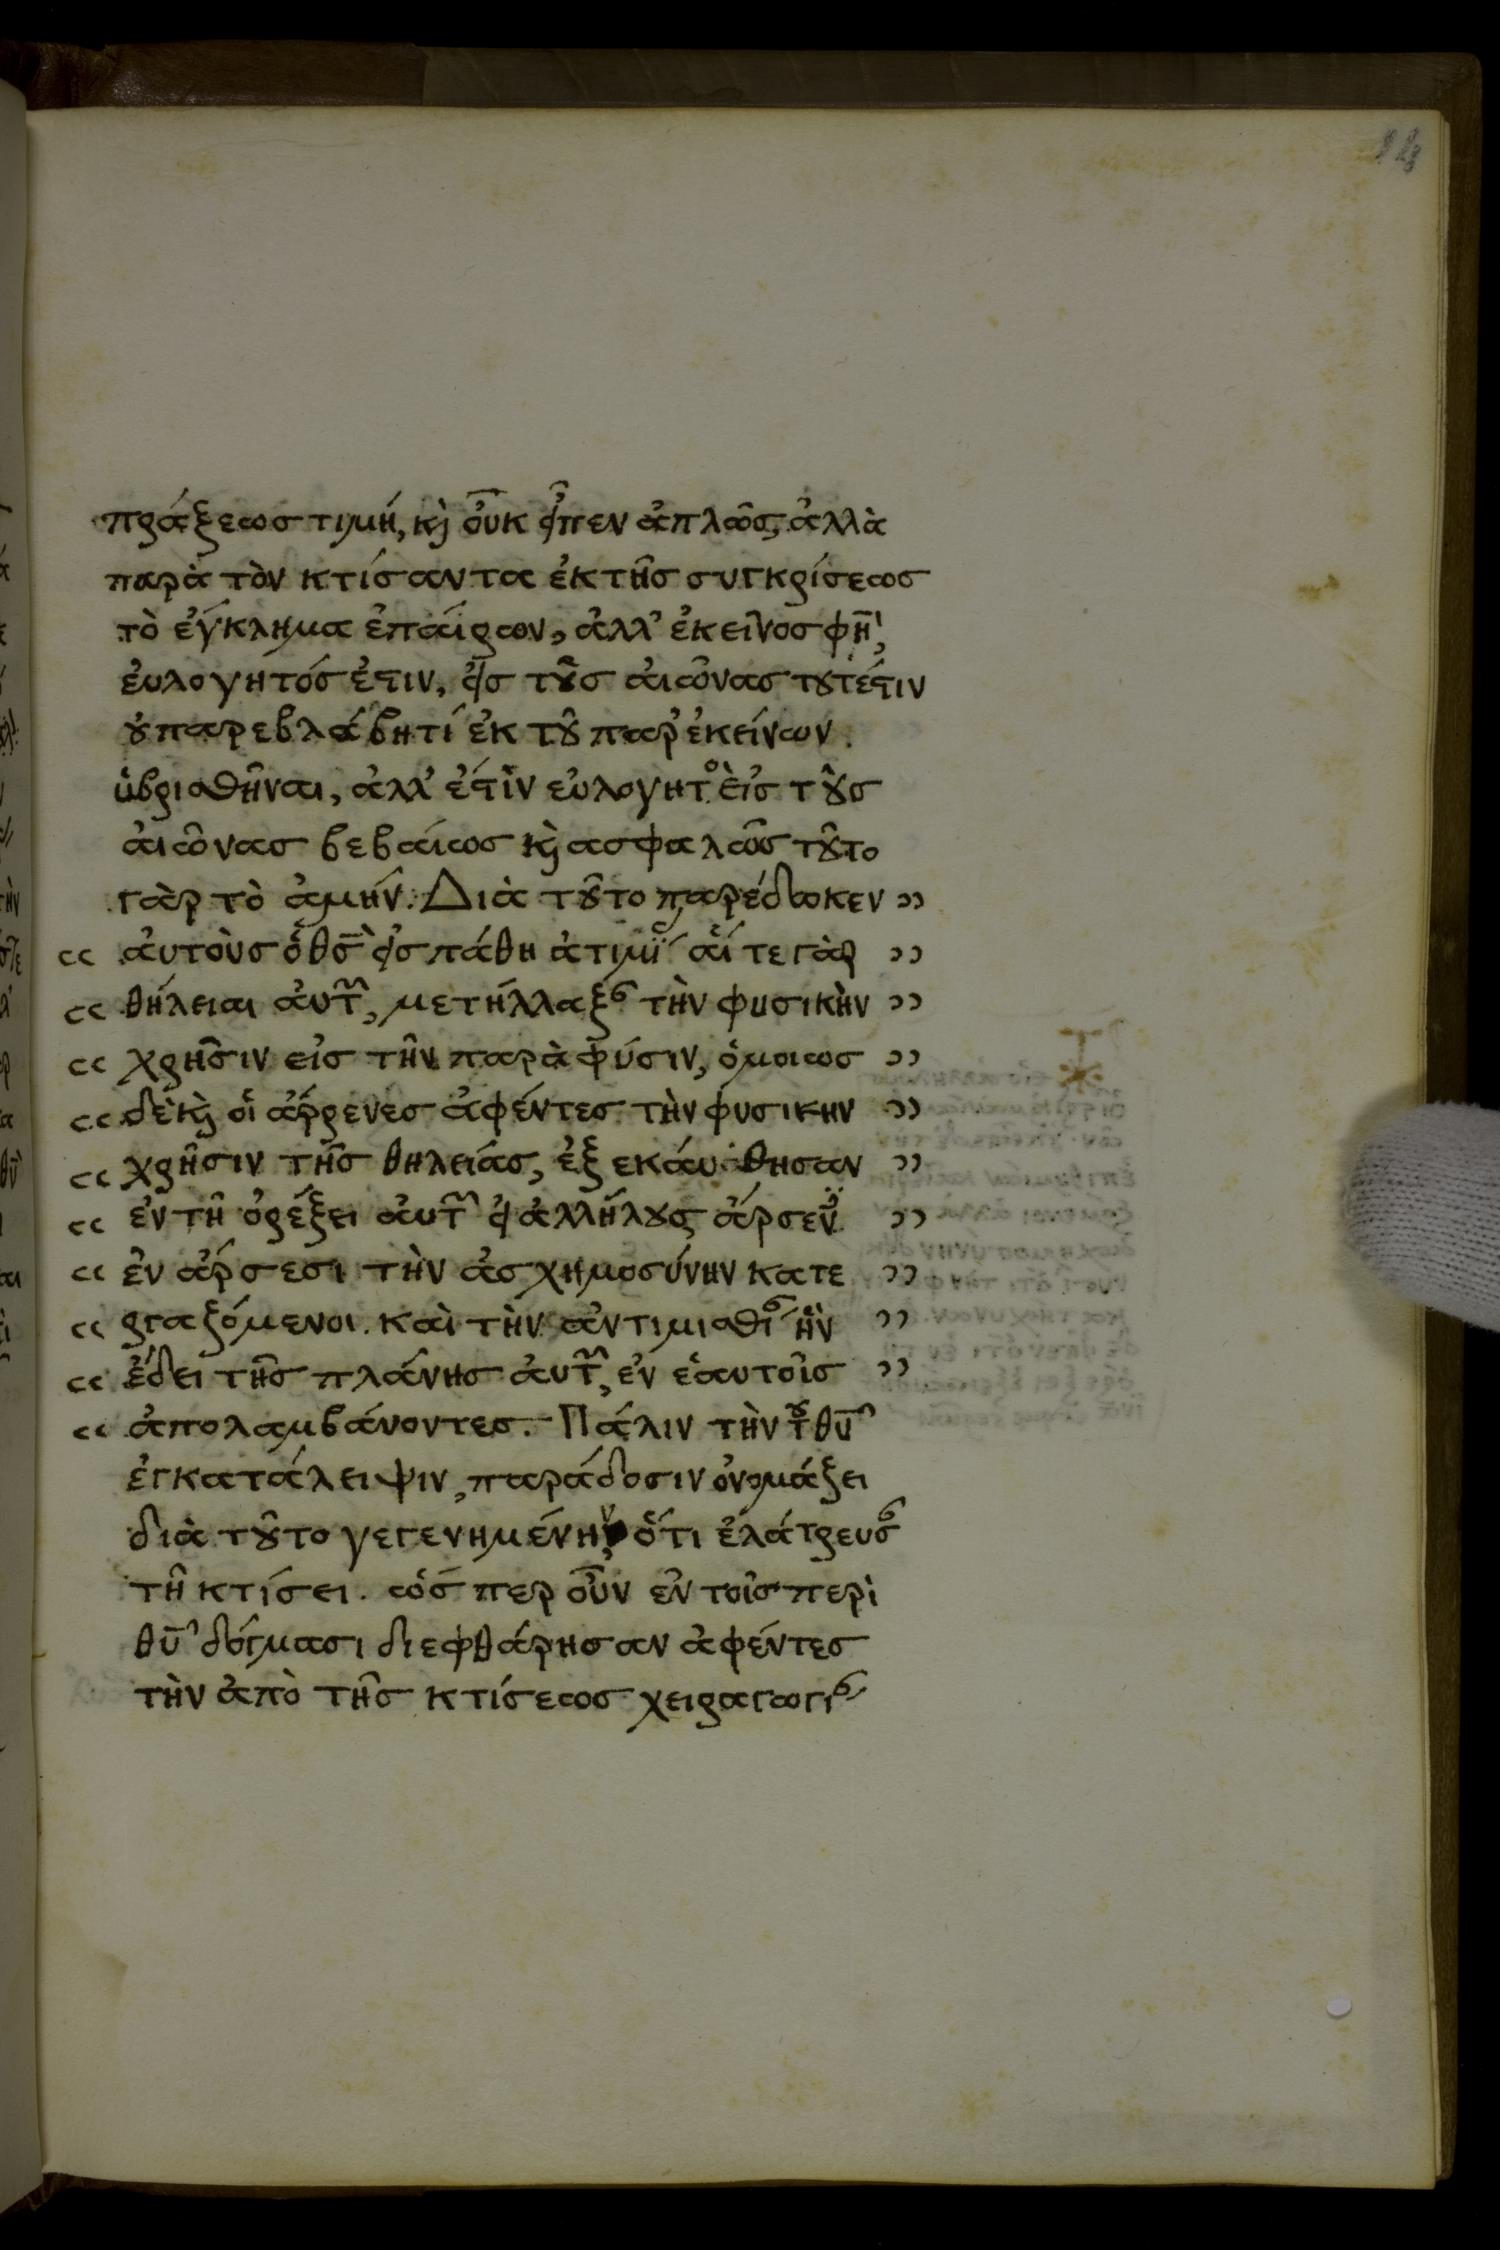 πράξεως τιμή, κ̀ οὐκ εἶπεν ἁπλῶς, ἀλλὰ
παρὰ τὸν κτίσαντα ἐκ τῆς συγκρίσεως
τὸ ἔγκλημα ἐπαίρων, ἀλλ' ἐκεῖνος φη̅,
εὐλογητός ἐστιν, εἰς τοὺς αἰῶνας τουτέστιν
οὐ παρεβλάβη τί ἐκ τοῦ παρ' ἐκείνων
ὑβρισθῆναι, ἀλλ' ἔστιν εὐλογητὸ εἰς τοὺς
αἰῶνας βεβαίως κ̀ ασφαλῶς τοῦτο
γὰρ τὸ ἀμήν. Διὰ τοῦτο παρέδωκεν ››
‹‹ αὐτοὺς ὁ θσ̅ εἰς πάθη ἀτιμί αἵ τε γὰρ ››
‹‹ θήλειαι αὐτ͂, μετήλλαξ τὴν φυσικὴν ››
‹‹ χρῆσιν εἰς τὴν παρὰ φύσιν, ὁμοιως ››
‹‹ δὲ κ̀ οἱ ἄρρενες ἀφέντες τὴν φυσικην ››
‹‹ χρῆσιν τῆς θηλείας, ἐξεκάυθησαν ››
‹‹ ἐν τῇ ὀρέξει αὐτ͂ εἰ ἀλλήλους ἄρσεν ››
‹‹ ἐν ἄρσεσι τὴν ἀσχημοσύνην κατε ››
‹‹ ργαζόμενοι. καὶ τὴν ἀντιμισθί ἣν ››
‹‹ ἔδει τῆς πλάνης αὐτ͂, ἐν ἑαυτοῖς ››
‹‹ ἀπολαμβάνοντες. Πάλιν τὴν τοῦ θυ̅
ἐγκατάλειψιν, παράδοσιν ὀνομάζει
διὰ τοῦτο γεγενημένην, ὅτι ἐλάτρευσ
τῇ κτίσει. ὥσπερ οὖν ἐν τοῖς περὶ
θυ̅ δόγμασι διεφθάρησαν ἀφέντες
τὴν ἀπὸ τῆς κτίσεως χειραγωγί